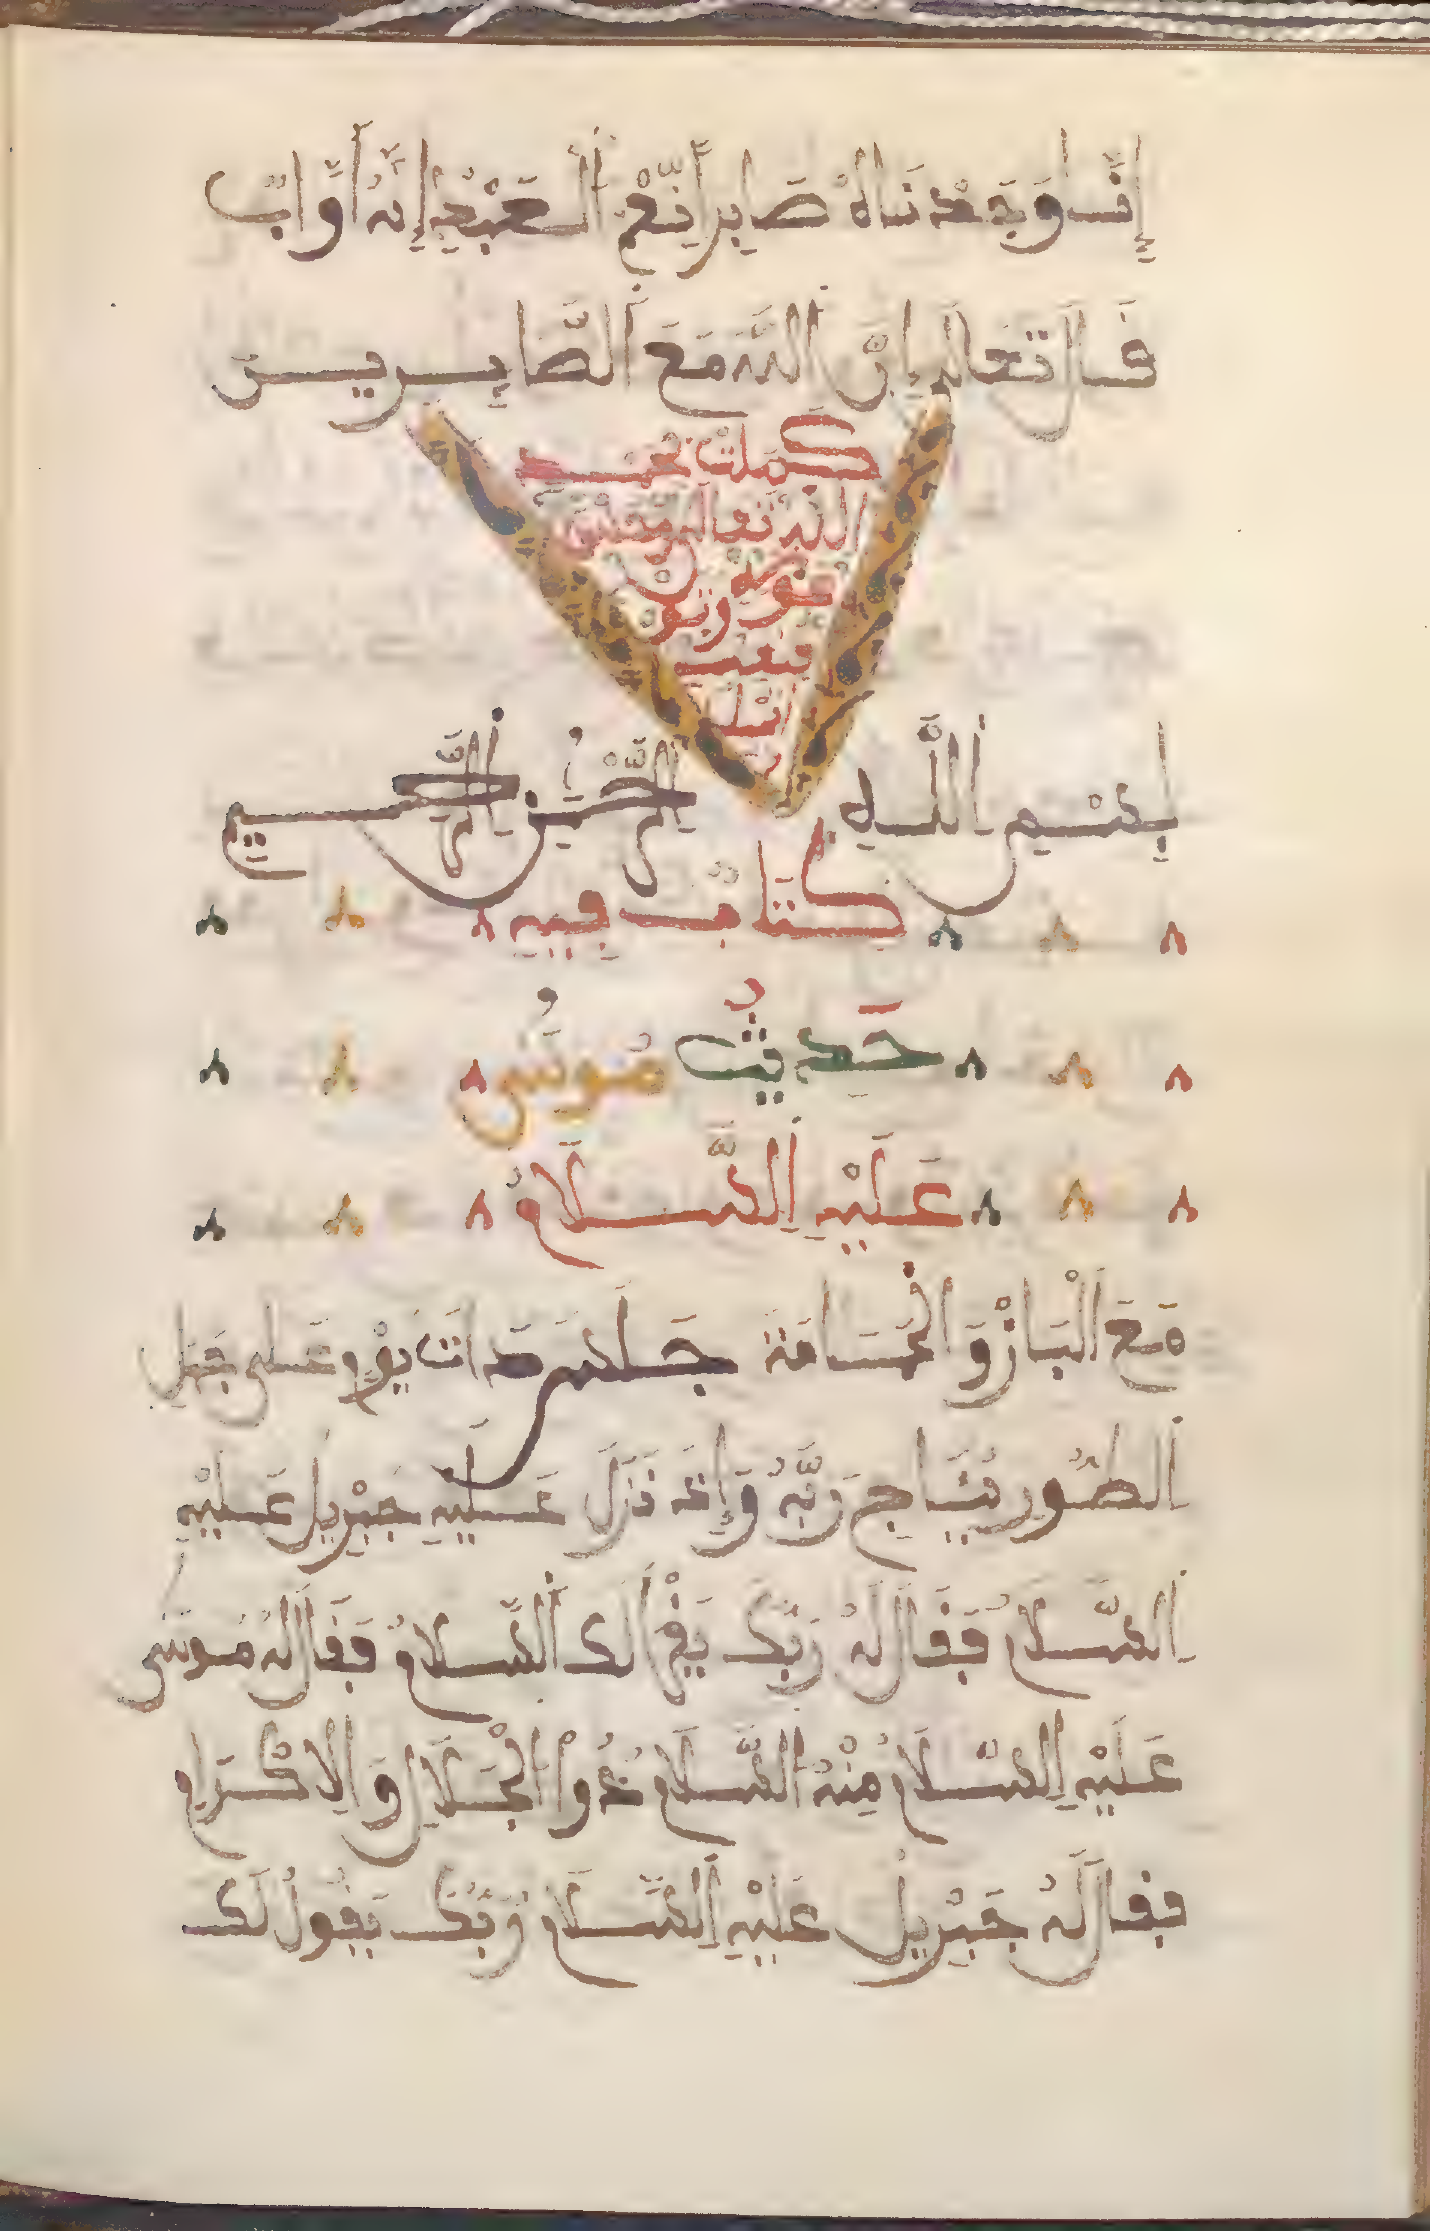 إِنَّا وَجَدْنَاهُ صَابِراً نِّعْمَ اَلْعَبْدُ إِنَّهُ أَوَّابٌ
فَالَ تَعَالَى إِنَّ اَللَّهَ مَعَ اَلصَّابِرِينَ
كَمُلَتْ بحَمْد
اللهِ تَعَالَى وَحُسْن
عَوْنِهِ
وَتَوْ
فِيقِ
بِسْمِ اِللَّهِ اِلرَّحْمَنِ اِلرَّحِيمِ
كِتَابٌ فِيهِ
حَدِيثُ مُوسَى
عَلَيْهِ اِلسَّلَامُ
مَعَ اَلْبَازْ وَالْحَمَامَةَ جَلَسَ ذَاتَ يَوْمٍ عَلَى جَبَلِ
اِلطُّورِ يُنَاجِي رَبَّهُ وَإِذَ نَزَلَ عَلَيْهِ جِبْرِيلُ عَلَيْهِ
اِلسَّلَامُ فَقَالَ لَهُ رَبُّكَ يَقْرَأُ لَكَ اَلسَّلَامُ فَقَالَ لَهُ مُوسَى
عَلَيْهِ اِلسَّلَامُ مِنْهُ اَلسَّلَامُ ذُوا اَلْجَلَالِ وَالِاكْرَامِ
فَقَالَ لَهُ جِبْرِيلُ عَلَيْهِ اِلسَّلَامُ رَبُّكَ يَقُولُ لَكَ